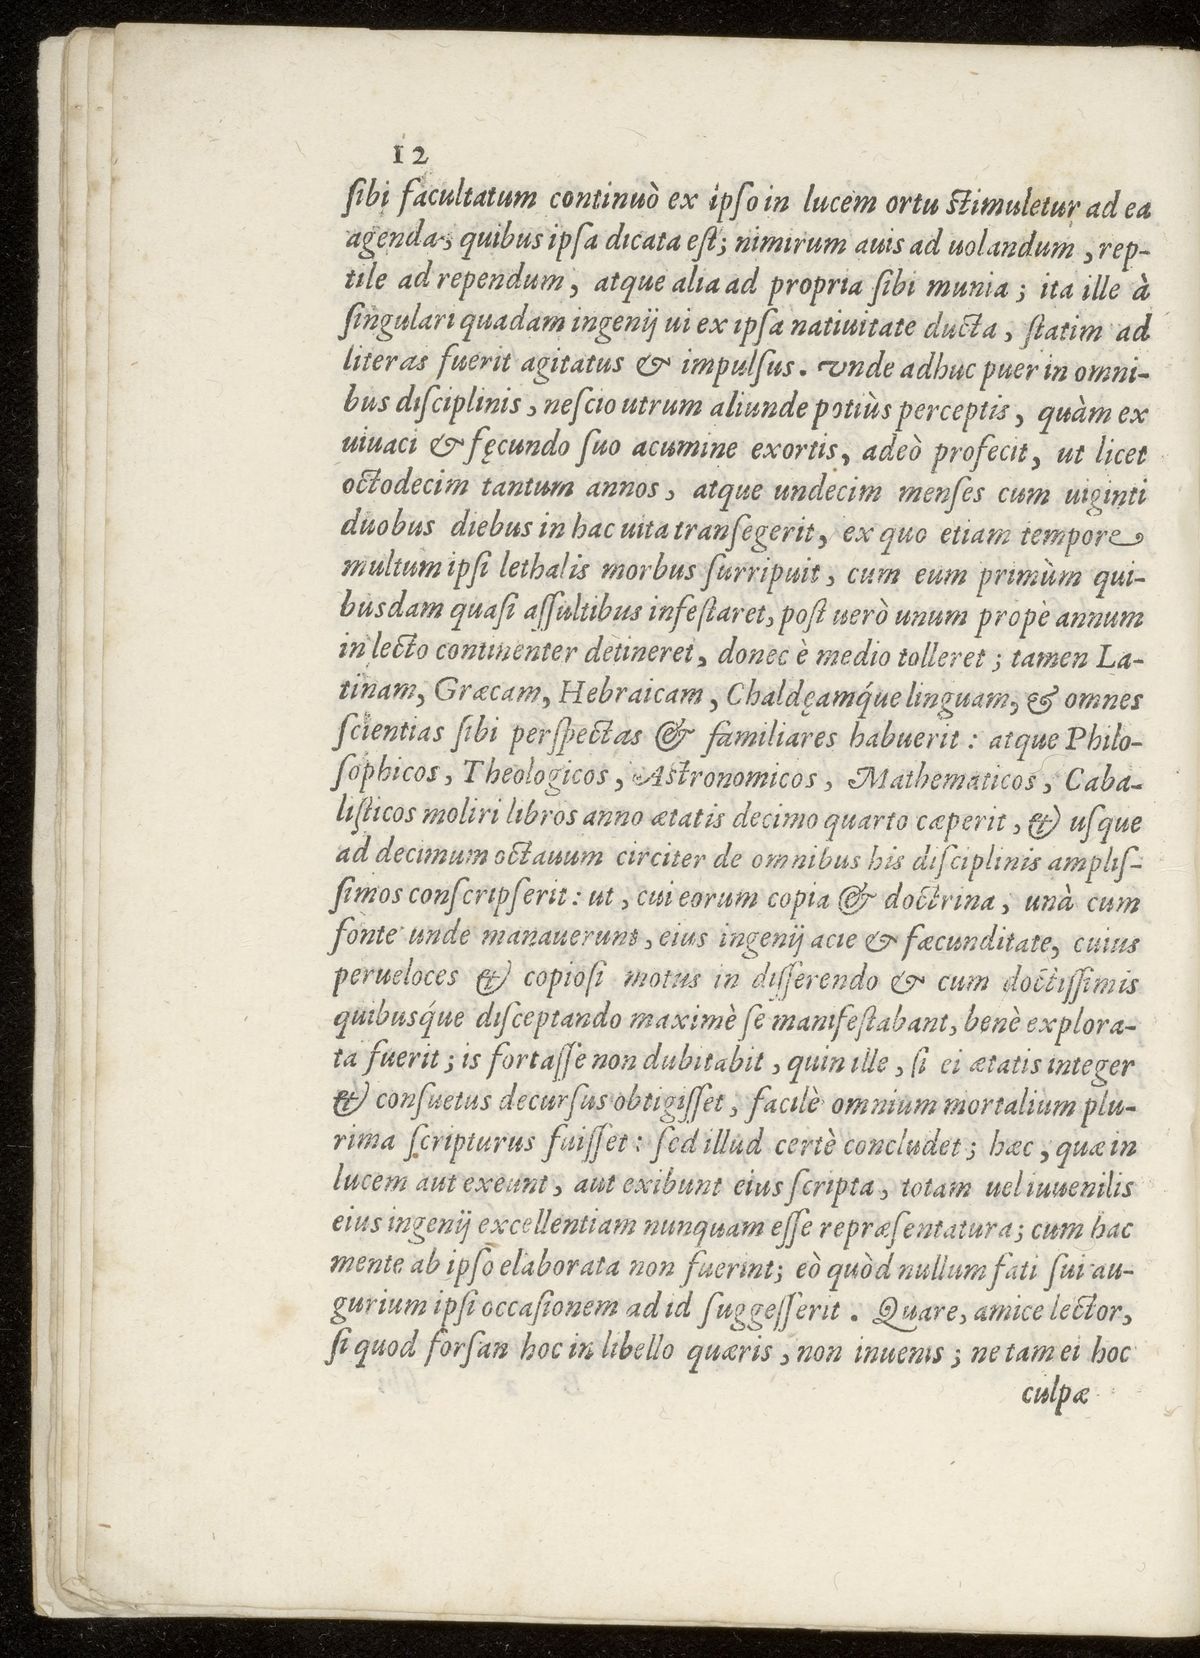 12
ſibi facultatum continuò ex ipſo in lucem ortu ſtimuletur ad ea
agenda, quibus ipſa dicata eſt; nimirum auis ad uolandum, rep-
tile ad rependum, atque alia ad propria ſibi munia; ita ille à
ſingulari quadam ingenij ui ex ipſa natiuitate ducta, ſtatim ad
literas fuerit agitatus & impulſus. Vnde adhuc puer in omni-
bus diſciplinis, neſcio utrum aliunde potiùs perceptis, quàm ex
uiuaci & fęcundo ſuo acumine exortis, adeò profecit, ut licet
octodecim tantum annos, atque undecim menſes cum uiginti
duobus diebus in hac uita tranſegerit, ex quo etiam tempore
multum ipſi lethalis morbus ſurripuit, cum eum primùm qui-
busdam quaſi aſſultibus infeſtaret, poſt uerò unum propè annum
in lecto continenter detineret, donec è medio tolleret; tamen La-
tinam, Græcam, Hebraicam, Chaldęamq́ue linguam, & omnes
ſcientias ſibi perſpectas & familiares habuerit: atque Philo-
ſophicos, Theologicos, Aſtronomicos, Mathematicos, Caba-
liſticos moliri libros anno ætatis decimo quarto cæperit, & uſque
ad decimum octauum circiter de omnibus his diſciplinis ampliſ-
ſimos conſcripſerit: ut, cui eorum copia & doctrina, unà cum
fonte unde manauerunt, eius ingenij acie & fæcunditate, cuius
perueloces & copioſi motus in diſſerendo & cum doctiſſimis
quibusq́ue diſceptando maximè ſe manifeſtabant, benè explora-
ta fuerit; is fortaſſe non dubitabit, quin ille, ſi ei ætatis integer
& conſuetus decurſus obtigiſſet, facilè omnium mortalium plu-
rima ſcripturus fuiſſet: ſed illud certè concludet; hæc, quæ in
lucem aut exeunt, aut exibunt eius ſcripta, totam uel iuuenilis
eius ingenij excellentiam nunquam eſſe repræſentatura; cum hac
mente ab ipſo elaborata non fuerint; eò quòd nullum fati ſui au-
gurium ipſi occaſionem ad id ſuggeſſerit. Quare, amice lector,
ſi quod forſan hoc in libello quæris, non inuenis; ne tam ei hoc
culpæ